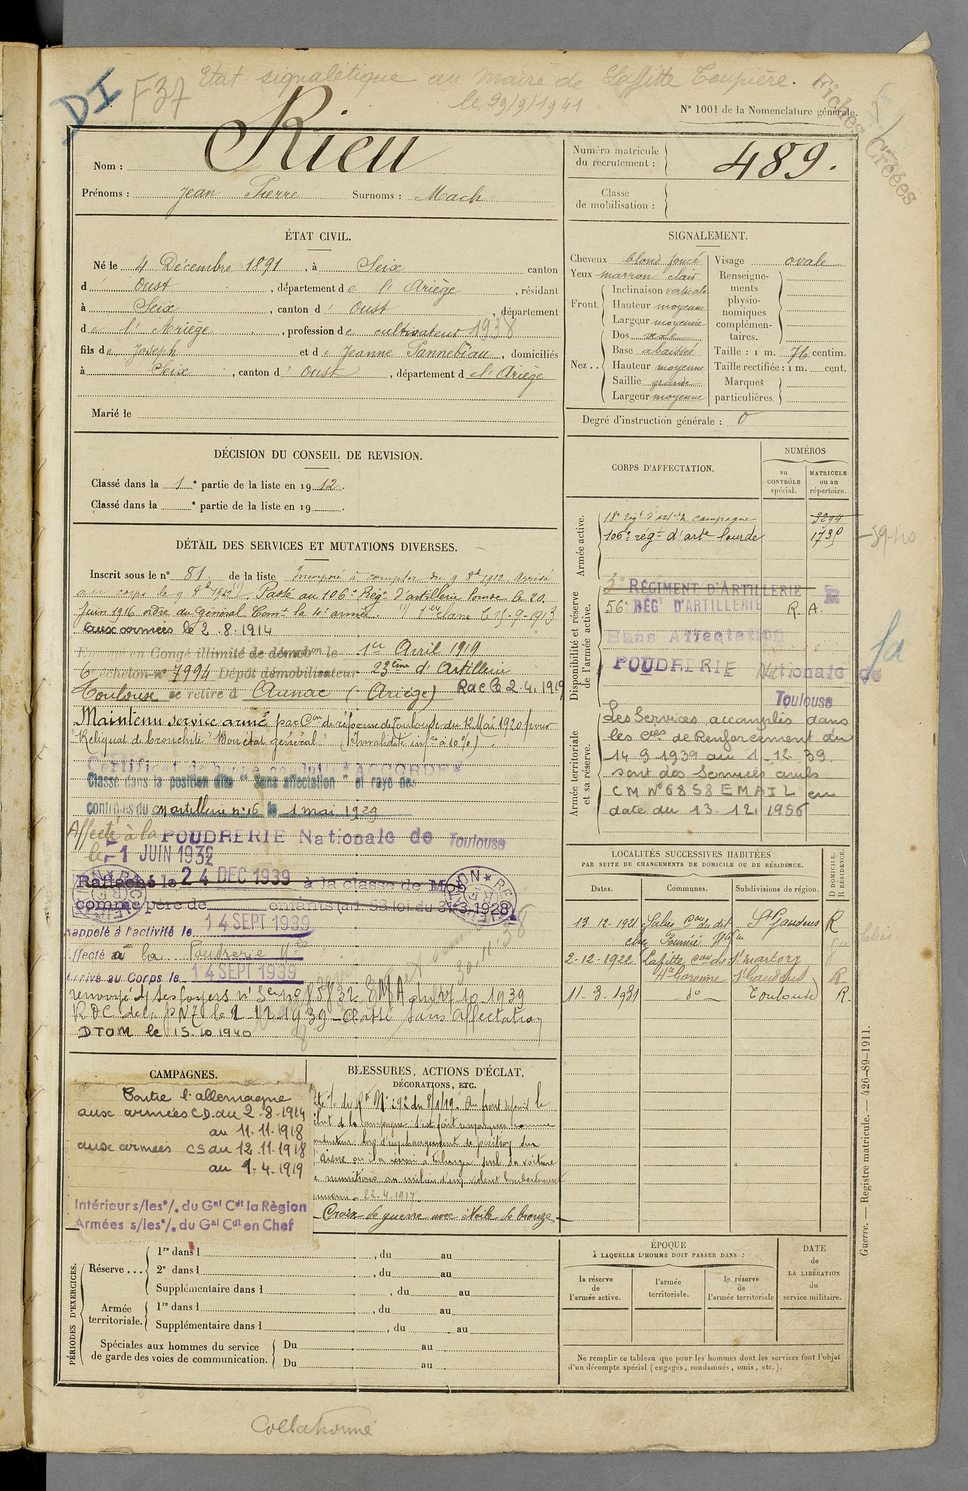 Etat signalétique au Maire de Laffitte Toupière.
le 29/9/1941
DI
F37
N° 1001 de la Nomenclature générale.
Fiches Créées
Nom : Rieu
Prénoms : Jean Pierre Surnoms : Mach
Numéro matricule du recrutement : 489.
Classe de mobilisation :
ÉTAT CIVIL.
Né le 4 Décembre 1891, à Seix canton
d Oust, département de l'Ariège, résidant
à Seix, canton d' Oust, département
de l'Ariège, profession de cultivateur 1938
fils de Joseph et de Jeanne Pannebiau, domiciliés
à Seix, canton d' Oust, département de l'Ariège
Marié le
SIGNALEMENT.
Cheveux blond foncé
Yeux marron clair
Front. Inclinaison verticale
Hauteur moyenne
Largeur moyenne
Nez.. Dos
Base abaissée
Hauteur moyenne
Saillie grande
Largeur moyenne
Visage ovale
Renseignements physionomiques complémentaires.
Taille : 1 m. 76 centim.
Taille rectifiée : 1 m. cent.
Marques particulières.
Degré d'instruction générale : 0
DÉCISION DU CONSEIL DE REVISION.
Classé dans la 1e partie de la liste en 1912.
Classé dans la e partie de la liste en 19
DÉTAIL DES SERVICES ET MUTATIONS DIVERSES.
Inscrit sous le n° 81 de la liste Incorporé à compter du 9 8bre 1912 arrivé
au corps le 9 8bre 1912. Passé au 106e Régt d'artillerie lourde le 20
Juin 1916 ordre du général Comt la 4e armée. 1ere classe le 13-9-1913
aux armées le 2.8.1914
Envoyé en Congé illimité de démobon le 1er Avril 1919
6e échelon n° 7994 Dépôt démobilisateur 23ème d'Artillerie
Toulouse se retire à Aunac (Ariège) RdeC 2.4.1919
Maintenu service armé par Con de réforme de Toulouse du 12 Mai 1920 pour
"Reliquat de bronchite" "Bon état général" (Invalidité infre à 10%).
Certificat de bonne conduite "ACCORDÉ"
Classé dans la position dite "Sans affectation" et rayé des
contrôles du artillerie n° 16 le 1 mai 1929
Affecté à la POUDRERIE Nationale de Toulouse
le 1 JUIN 1932
Rattaché le 24 DEC 1939 à la classe de Mob
comme père de enfants (art. 58 loi du 31-3-1928)
Rappelé à l'activité le 14 SEPT 1939
Affecté à la Poudrerie Nle
Arrivé au Corps le 14 SEPT 1939
30.11.38
renvoyé ds ses foyers 10 1939
RDC de la PNT le 2 12 1939 - Classé sans affectation
DTOM le 15.10 1940
CORPS D'AFFECTATION.
NUMÉROS
au CONTRÔLE spécial.
MATRICULE ou au répertoire.
Armée active.
18e régt d'artie de campagne
106e régt d'artie lourde 1738
39-40
Disponibilité et réserve de l'armée active.
RÉGIMENT D'ARTILLERIE R
56e REGt D'ARTILLERIE R A.
Sans Affectation
POUDRERIE Nationale de
Toulouse
fa
Armée territoriale et sa réserve.
Les Services accomplis dans
les Cies de Renforcement du
14 9 1939 au 1-12 39
sont des Services civils
CM N° 6858 EMAIL en
date du 13.12.1956
LOCALITÉS SUCCESSIVES HABITÉES
PAR SUITE DE CHANGEMENTS DE DOMICILE OU DE RÉSIDENCE.
Dates. Communes. Subdivisions de région. D DOMICILE. R RÉSIDENCE.
13-12-1921 Salies Con du dit St Gaudens R
2-12-1922 Lafitte Con de St Martory
Hte Garonne St Gaudens R
11-3-1931 do Toulouse R.
CAMPAGNES.
Contre l'allemagne
aux armées C.D. du 2-8-1914
au 11.11.1918
aux armées CS au 12.11.1918
au 1-4.1919
Intérieur s/les o/. du Gal Cdt la Région
Armées s/les o/. du Gal Cdt en Chef
BLESSURES, ACTIONS D'ÉCLAT,
DÉCORATIONS, ETC.
du Rt N° 292 du 8/1/19. Au front depuis le
début de la campagne. S'est fait remarquer comme
conducteur lors d'un changement de position dur
l'Aisne où il a réussi à sa voiture
de munitions au milieu d'un violent bombardement
ennemi 22.4.1917
Croix de guerre avec étoile de bronze
PÉRIODES D'EXERCICES.
Réserve... 1re dans l , du au
2e dans l , du au
Supplémentaire dans l , du au
Armée territoriale. 1re dans l , du au
Supplémentaire dans l , du au
Spéciales aux hommes du service de garde des voies de communication. Du au
Du au
ÉPOQUE
À LAQUELLE L'HOMME DOIT PASSER DANS :
la réserve de l'armée active.
l'armée territoriale.
la réserve de l'armée territoriale
DATE de LA LIBÉRATION du service militaire.
Ne remplir ce tableau que pour les hommes dont les services font l'objet
d'un décompte spécial (engagés, condamnés, omis, etc.).
Guerre. — Registre matricule. — 426-89-1911.
Collationné